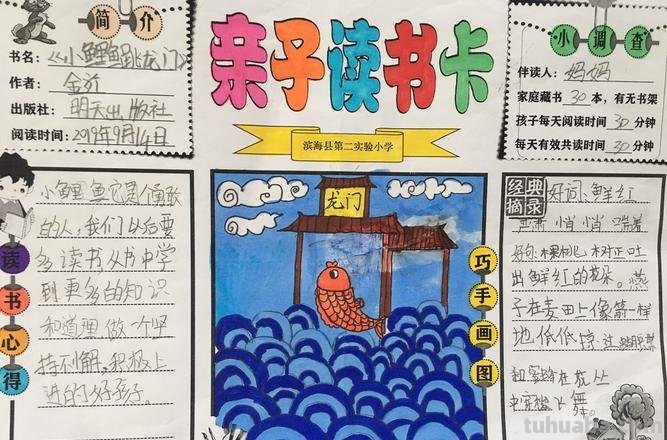 简介
书名：《小鲤鱼跳龙门》
作者：金近
出版社：明天出版社
阅读时间：2019年9月14日
亲子读书卡
滨海县第二实验小学
小调查
伴读人：妈妈
家庭藏书 30 本，有无书架
孩子每天阅读时间 30 分钟
每天有效共读时间 30 分钟
读书心得
小鲤鱼它是个勇敢
的人，我们以后要
多读书，从书中学
到更多的知识
和道理做一个坚
持不懈，积极上
进的好孩子。
龙门
巧手画图
经典摘录
好词：鲜红
悄悄
好句：棵桃树正吐
出鲜红的花朵。燕
子在麦田上像箭一样
地低低掠过
和蜜蜂在花丛
中飞舞。